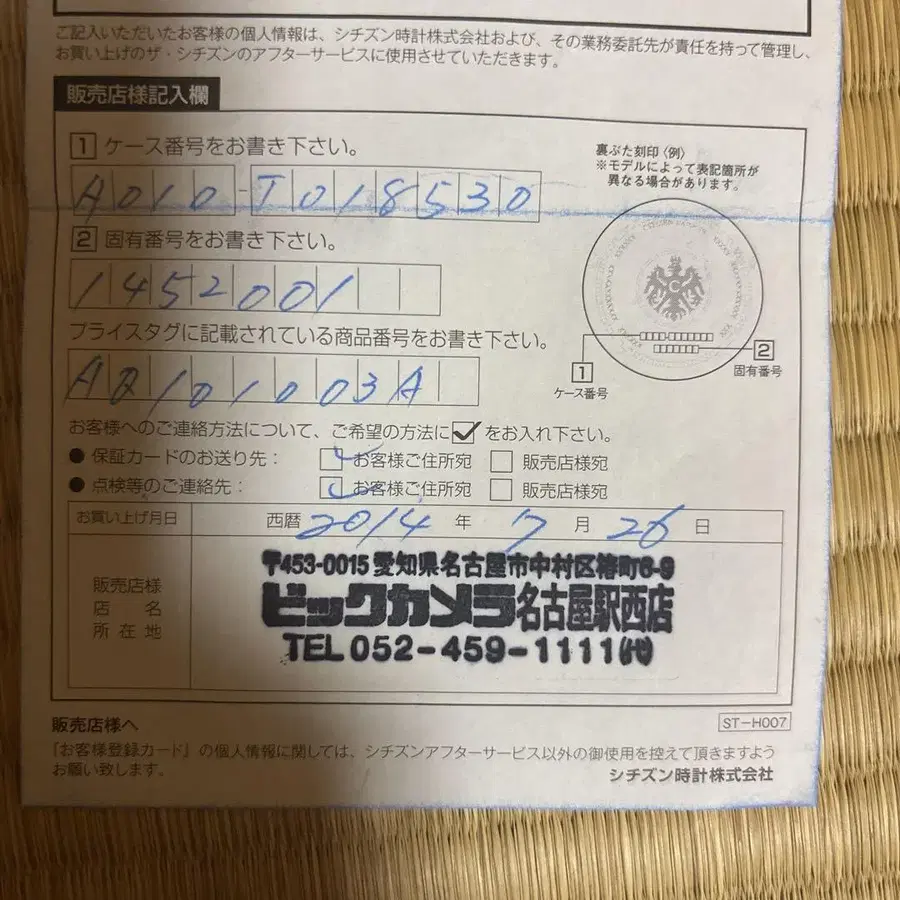 ご記入いただいたお客様の個人情報は、シチズン時計株式会社および、その業務委託先が責任を持って管理し、
お買い上げのザ・シチズンのアフターサービスに使用させていただきます。
販売店様記入欄
1 ケース番号をお書き下さい。
裏ぶた刻印〈例〉
※モデルによって表記箇所が
異なる場合があります。
A010-T018530
2 固有番号をお書き下さい。
1452001
プライスタグに記載されている商品番号をお書き下さい。
1 ケース番号
2 固有番号
AQ101003A
お客様へのご連絡方法について、ご希望の方法に☑をお入れ下さい。
● 保証カードのお送り先： ☑お客様ご住所宛 □ 販売店様宛
● 点検等のご連絡先： ☑お客様ご住所宛 □ 販売店様宛
お買い上げ月日 西暦 2014 年 7 月 26 日
販売店様
店名
所在地
〒453-0015 愛知県名古屋市中村区椿町6-9
ビックカメラ名古屋駅西店
TEL 052-459-1111㈹
販売店様へ
ST-H007
「お客様登録カード」の個人情報に関しては、シチズンアフターサービス以外の御使用を控えて頂きますよう
お願い致します。
シチズン時計株式会社